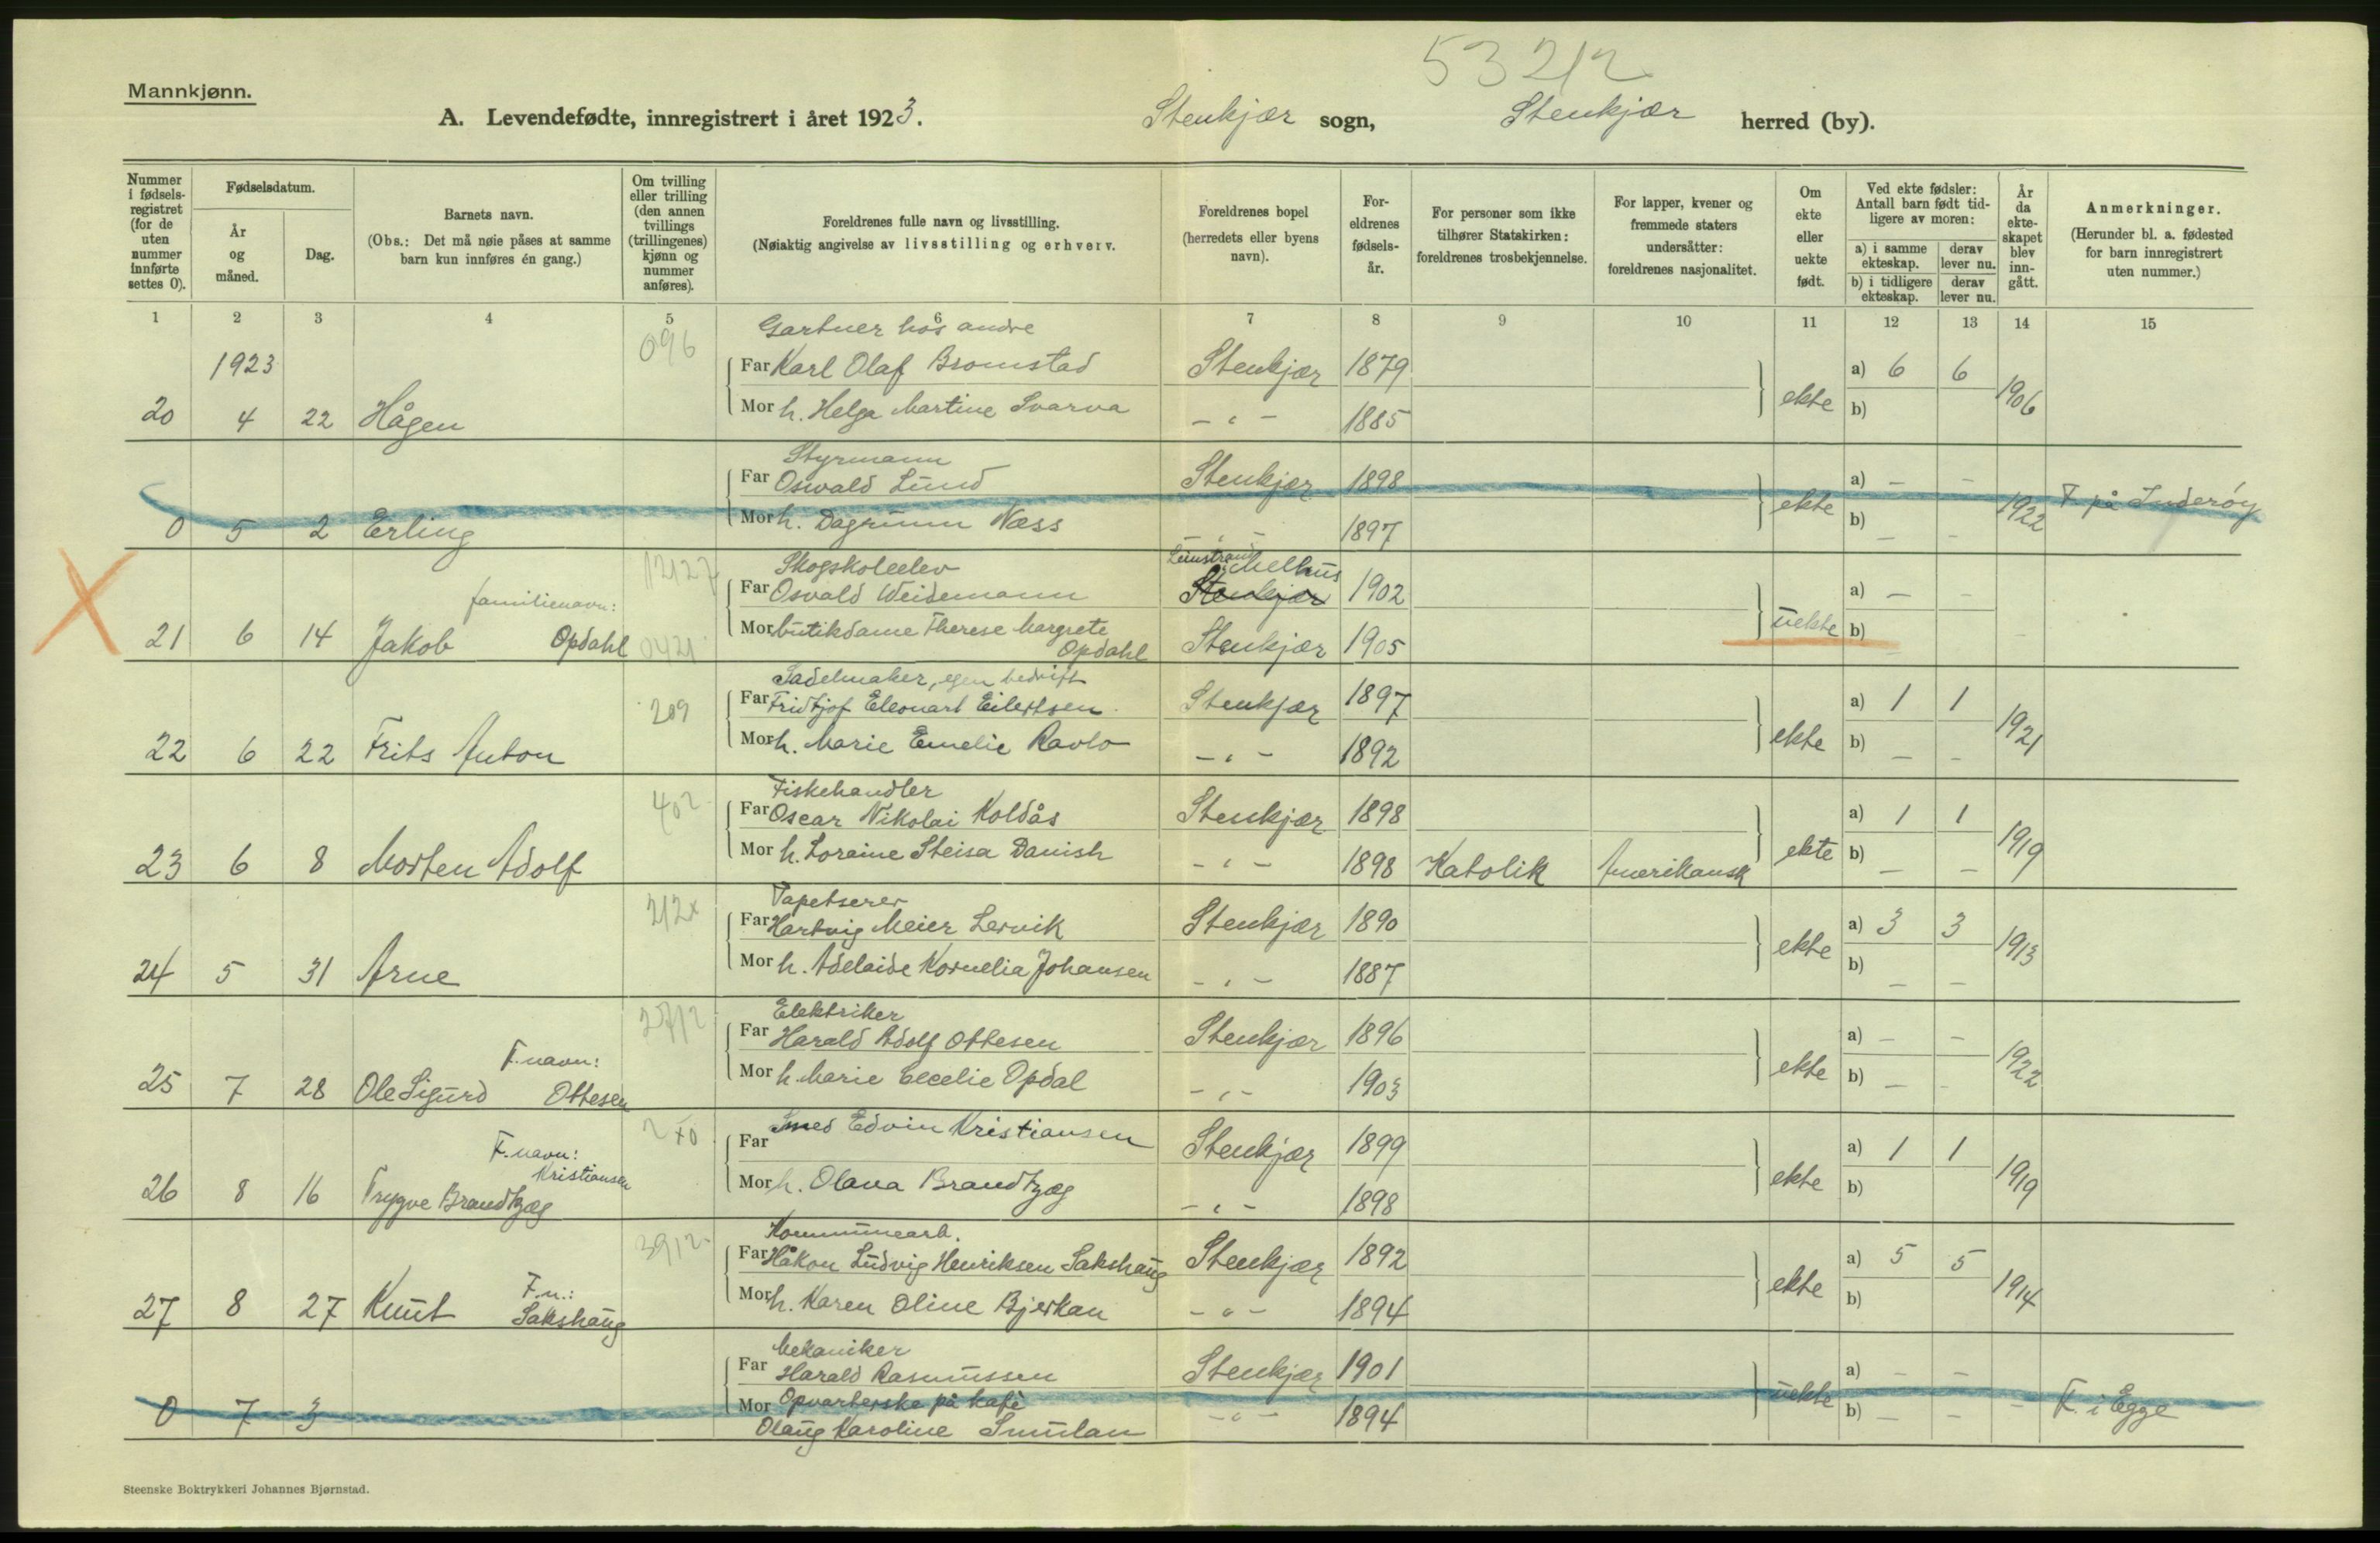 53212
Mannkjønn.
A. Levendefødte, innregistrert i året 1923. Stenkjær sogn, Stenkjær herred (by).
Nummer i fødsels-registret (for de uten nummer innførte settes 0).
Fødselsdatum.
År og måned.
Dag.
Barnets navn.
(Obs.: Det må nøie påses at samme barn kun innføres én gang.)
Om tvilling eller trilling (den annen tvillings (trillingenes) kjønn og nummer anføres).
Foreldrenes fulle navn og livsstilling.
(Nøiaktig angivelse av livsstilling og erhverv.
Foreldrenes bopel (herredets eller byens navn).
For-eldrenes fødsels-år.
For personer som ikke tilhører Statskirken: foreldrenes trosbekjennelse.
For lapper, kvener og fremmede staters undersåtter: foreldrenes nasjonalitet.
Om ekte eller uekte født.
Ved ekte fødsler: Antall barn født tid-ligere av moren:
a) i samme ekteskap.
derav lever nu.
b) i tidligere ekteskap.
derav lever nu.
År da ekte-skapet blev inn-gått.
Anmerkninger.
(Herunder bl. a. fødested for barn innregistrert uten nummer.)
1 2 3 4 5 6 7 8 9 10 11 12 13 14 15
1923
096
Gartner hos andre
Far Karl Olaf Bromstad Stenkjær 1879 a) 6 6
20 4 22 Hågen Mor h. Helga Martine Svarva - " - 1885 ekte b) 1906
Styrmann
Far Oswald Lund Stenkjær 1898 a) - -
0 5 2 Erling Mor h. Dagrunn Næss - " - 1897 ekte b) - - 1922 F. på Inderøy
12127
Skogskoleelev Leinstrand Melhus
Far Osvald Weidemann Stenkjær 1902 a) - -
familienavn:
21 6 14 Jakob Opdahl 0421 Mor butikdame Therese Margrete Opdahl Stenkjær 1905 uekte b) -
Sadelmaker, egen bedrift
209 Far Fridtjof Eleonart Eilertsen Stenkjær 1897 a) 1 1
22 6 22 Frits Anton Mor h. Marie Emelie Ravlo - " - 1892 ekte b) - - 1921
Fiskehandler
402 Far Oscar Nikolai Koldås Stenkjær 1898 a) 1 1
23 6 8 Morten Adolf Mor h. Loraine Steisa Danish - " - 1898 Katolik Amerikansk ekte b) - - 1919
Tapetserer
212x Far Hartvig Meier Lervik Stenkjær 1890 a) 3 3
24 5 31 Arne Mor h. Adelaide Kornelia Johansen - " - 1887 ekte b) - - 1913
Elektriker
2712 Far Harald Adolf Ottesen Stenkjær 1896 a) - -
F.navn:
25 7 28 Ole Sigurd Ottesen Mor h. Marie Cecelie Opdal - " - 1903 ekte b) - - 1922
2x0 Far Smed Edvin Kristiansen Stenkjær 1899 a) 1 1
F.navn:
Kristiansen
26 8 16 Trygve Brandtzæg Mor h. Olava Brandtzæg - " - 1898 ekte b) 1919
Kommunearb.
3912 Far Håkon Ludvig Henriksen Sakshaug Stenkjær 1892 a) 5 5
F.n.:
27 8 27 Knut Sakshaug Mor h. Karen Oline Bjerkan - " - 1894 ekte b) 1914
Mekaniker
Far Harald Rasmussen Stenkjær 1901 a) - -
0 7 3 Mor Opvarterske på kafè - " - 1894 uekte b) - - - F. i Egge
Olaug Karoline Smulan
Steenske Boktrykkeri Johannes Bjørnstad.